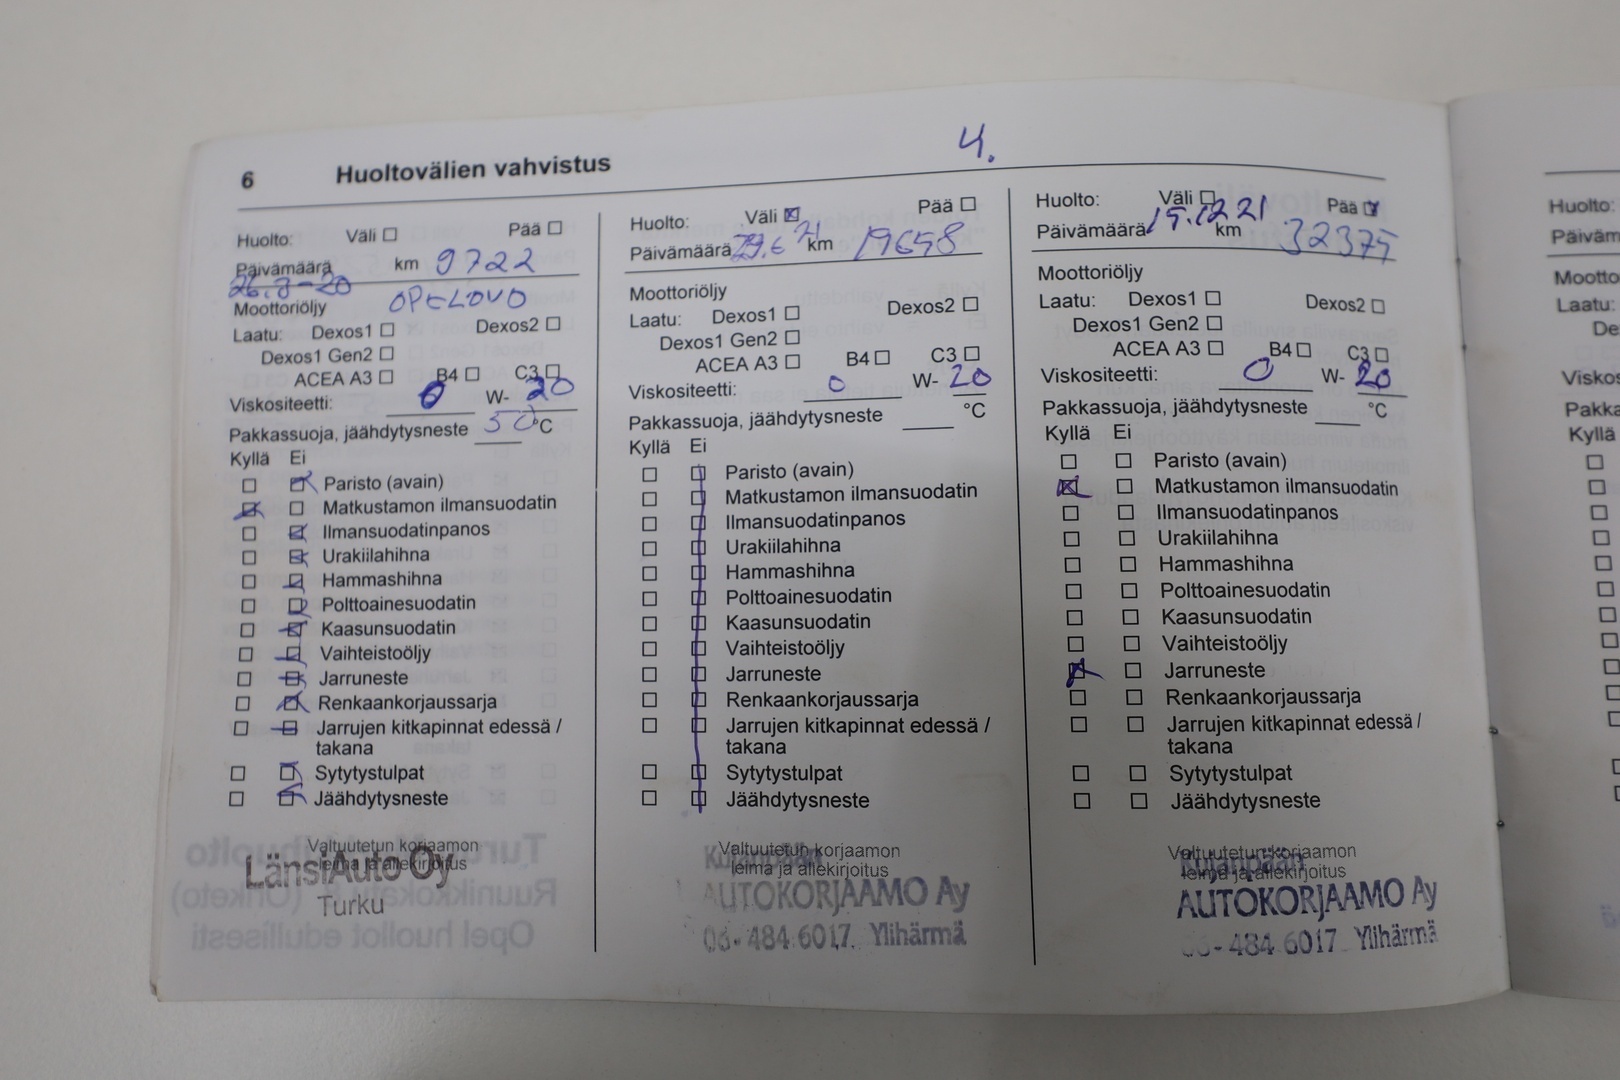 4.
6 Huoltovälien vahvistus
Huolto: Väli ☐ Pää ☐
Päivämäärä km 9722
26.8-20
Moottoriöljy OPELOVO
Laatu: Dexos1 ☐ Dexos2 ☐
Dexos1 Gen2 ☐
ACEA A3 ☐ B4 ☐ C3 ☐
Viskositeetti: 0 W- 20
Pakkassuoja, jäähdytysneste 50 °C
Kyllä Ei
☐ ☒ Paristo (avain)
☒ ☐ Matkustamon ilmansuodatin
☐ ☒ Ilmansuodatinpanos
☐ ☒ Urakiilahihna
☐ ☒ Hammashihna
☐ ☒ Polttoainesuodatin
☐ ☒ Kaasunsuodatin
☐ ☒ Vaihteistoöljy
☐ ☒ Jarruneste
☐ ☒ Renkaankorjaussarja
☐ ☒ Jarrujen kitkapinnat edessä /
takana
☐ ☒ Sytytystulpat
☐ ☒ Jäähdytysneste
Valtuutetun korjaamon
leima ja allekirjoitus
LänsiAuto Oy
Turku
Huolto: Väli ☒ Pää ☐
Päivämäärä 29.6 21 km 19658
Moottoriöljy
Laatu: Dexos1 ☐ Dexos2 ☐
Dexos1 Gen2 ☐
ACEA A3 ☐ B4 ☐ C3 ☐
Viskositeetti: 0 W- 20
Pakkassuoja, jäähdytysneste °C
Kyllä Ei
☐ ☐ Paristo (avain)
☐ ☐ Matkustamon ilmansuodatin
☐ ☐ Ilmansuodatinpanos
☐ ☐ Urakiilahihna
☐ ☐ Hammashihna
☐ ☐ Polttoainesuodatin
☐ ☐ Kaasunsuodatin
☐ ☐ Vaihteistoöljy
☐ ☐ Jarruneste
☐ ☐ Renkaankorjaussarja
☐ ☐ Jarrujen kitkapinnat edessä /
takana
☐ ☐ Sytytystulpat
☐ ☐ Jäähdytysneste
Valtuutetun korjaamon
leima ja allekirjoitus
AUTOKORJAAMO Ay
06-484 6017 Ylihärmä
Huolto: Väli ☐ Pää ☒
Päivämäärä 15.12 21 km 32375
Moottoriöljy
Laatu: Dexos1 ☐ Dexos2 ☐
Dexos1 Gen2 ☐
ACEA A3 ☐ B4 ☐ C3 ☐
Viskositeetti: 0 W- 20
Pakkassuoja, jäähdytysneste °C
Kyllä Ei
☐ ☐ Paristo (avain)
☒ ☐ Matkustamon ilmansuodatin
☐ ☐ Ilmansuodatinpanos
☐ ☐ Urakiilahihna
☐ ☐ Hammashihna
☐ ☐ Polttoainesuodatin
☐ ☐ Kaasunsuodatin
☐ ☐ Vaihteistoöljy
☒ ☐ Jarruneste
☐ ☐ Renkaankorjaussarja
☐ ☐ Jarrujen kitkapinnat edessä /
takana
☐ ☐ Sytytystulpat
☐ ☐ Jäähdytysneste
Valtuutetun korjaamon
leima ja allekirjoitus
AUTOKORJAAMO Ay
06-484 6017 Ylihärmä
Huolto:
Laatu:
Kyllä